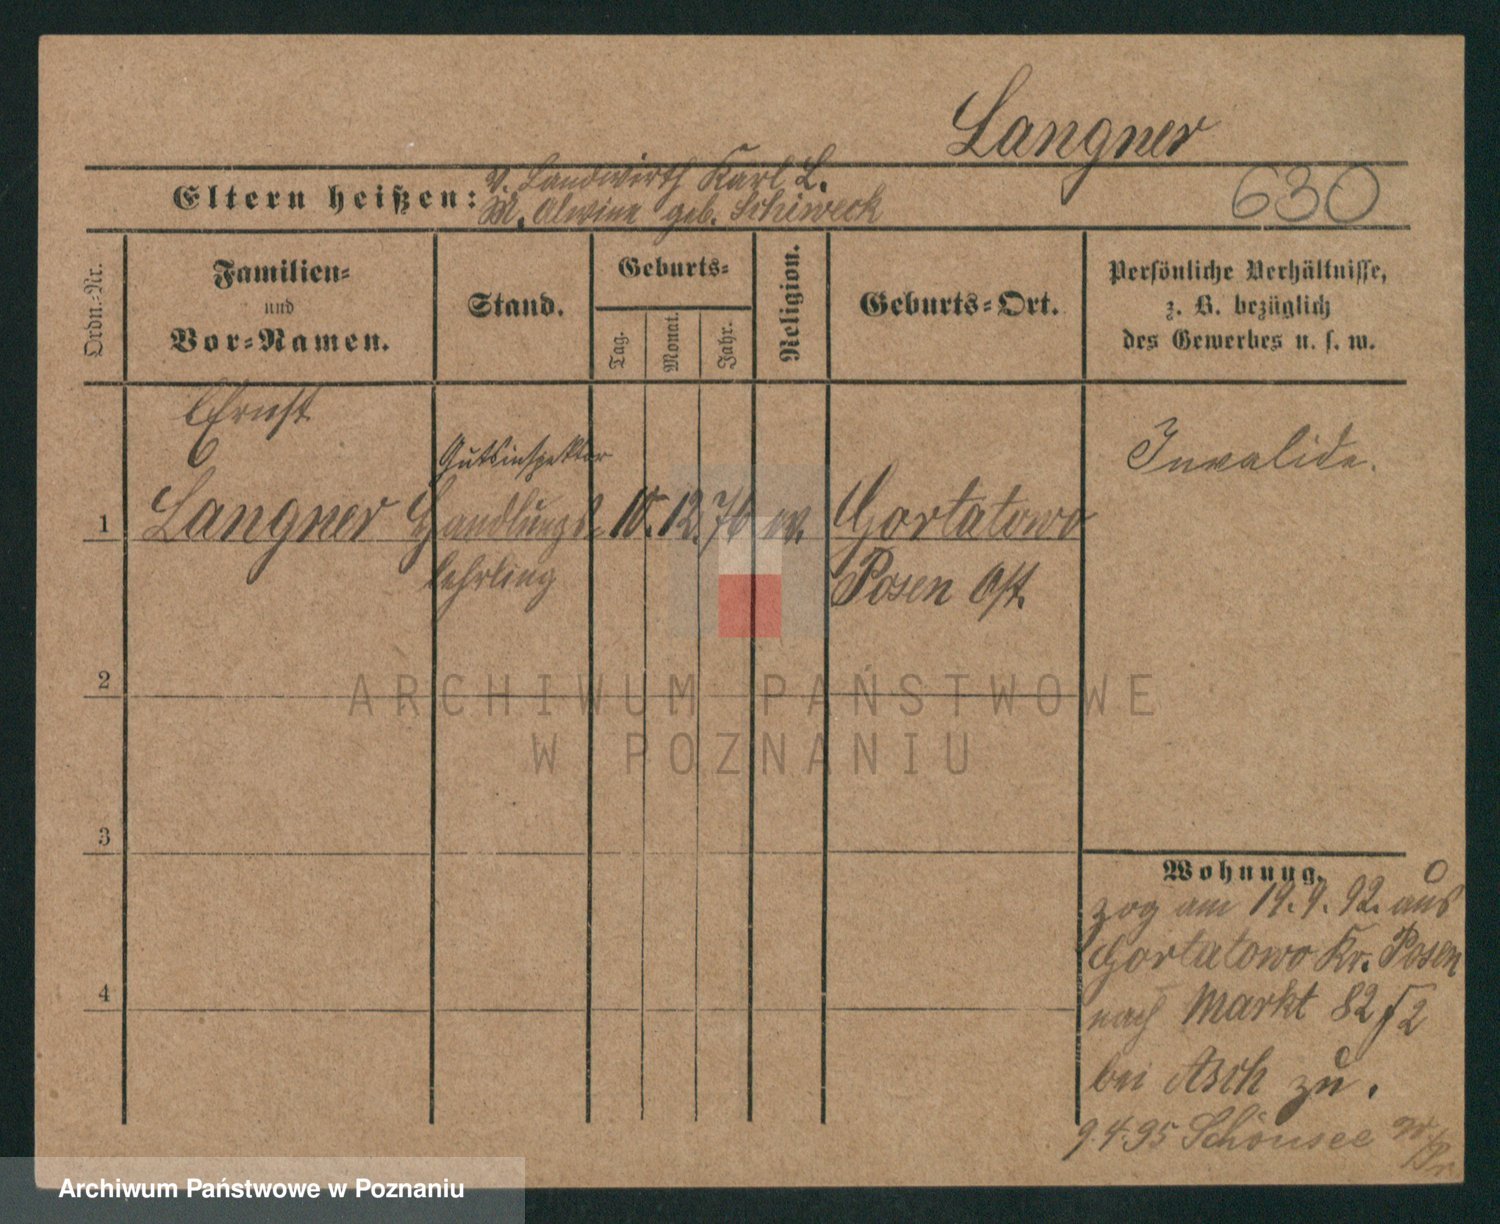 Langner
Eltern heißen: V. Landwirth Karl L.
M. Alwine geb. Schiweck
630
Ordn.-Nr.
Familien-
und
Vor-Namen.
Stand.
Geburts-
Tag.
Monat.
Jahr.
Religion.
Geburts-Ort.
Persönliche Verhältnisse,
z. B. bezüglich
des Gewerbes u. s. w.
Ernst
Gutsinspektor
Invalide.
1 Langner Handlungs- 10. 12. 76 ev. Gortatowo
lehrling Posen Ost.
2
3
4
Wohnung.
zog am 19.9.92. aus
Gortatowo Kr. Posen
nach Markt 82 f 2
bei Asch zu.
9.4.95 Schönsee
ARCHIWUM PAŃSTWOWE
W POZNANIU
Archiwum Państwowe w Poznaniu